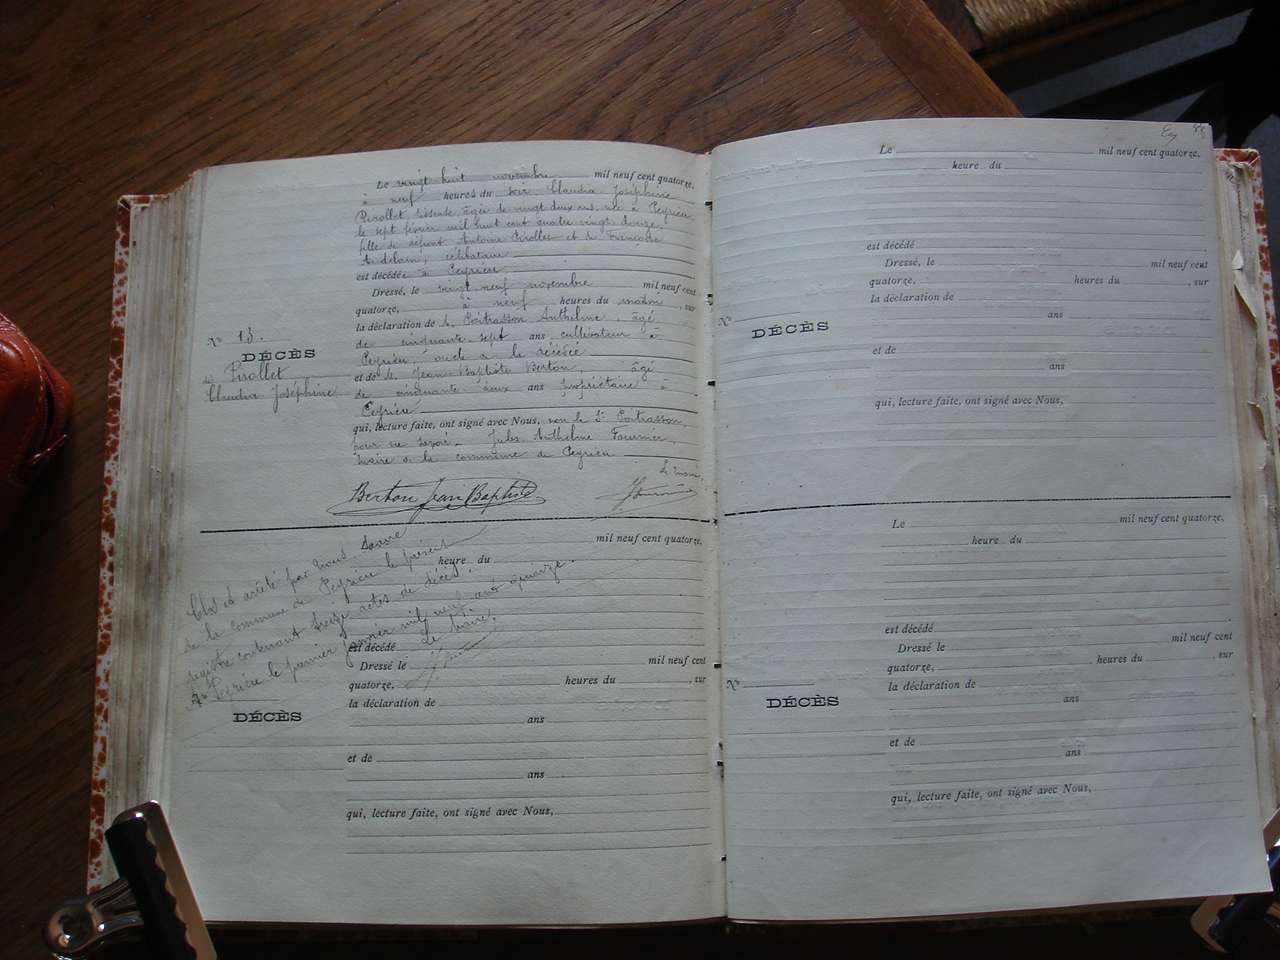 Le vingt huit novembre mil neuf cent quatorze,
à neuf heures du soir Claudia Joséphine
Pirollet, âgée de vingt deux ans, née à Peyrieu
le sept février mil huit cent quatre vingt douze,
fille de défunt Antoine Pirollet et de Françoise
célibataire
est décédée à Peyrieu
Dressé, le vingt neuf novembre mil neuf cent
quatorze, à neuf heures du matin, sur
la déclaration de M. Poitrasson Anthelme, âgé
de cinquante sept ans cultivateur à
Peyrieu, oncle de la décédée
et de M. Jean-Baptiste Berton, âgé
de cinquante deux ans propriétaire à
Peyrieu
qui, lecture faite, ont signé avec Nous, non le Sr Poitrasson,
pour ne savoir. Jules Anthelme Fournier,
maire de la commune de Peyrieu
Le maire,
Berton Jean Baptiste
N° 13.
DÉCÈS
de Pirollet
Claudia Joséphine
Clos et arrêté par nous maire
de la commune de Peyrieu le présent
registre contenant treize actes de décès.
Peyrieu le premier janvier mil neuf cent quinze.
Le Maire,
mil neuf cent quatorze,
heure du
est décédé
Dressé le mil neuf cent
quatorze, heures du , sur
la déclaration de
ans
et de
ans
qui, lecture faite, ont signé avec Nous,
N°
DÉCÈS
Le mil neuf cent quatorze,
heure du
est décédé
Dressé, le mil neuf cent
quatorze, heures du , sur
la déclaration de
ans
et de
ans
qui, lecture faite, ont signé avec Nous,
N°
DÉCÈS
Le mil neuf cent quatorze,
heure du
est décédé
Dressé le mil neuf cent
quatorze, heures du , sur
la déclaration de
ans
et de
ans
qui, lecture faite, ont signé avec Nous,
N°
DÉCÈS